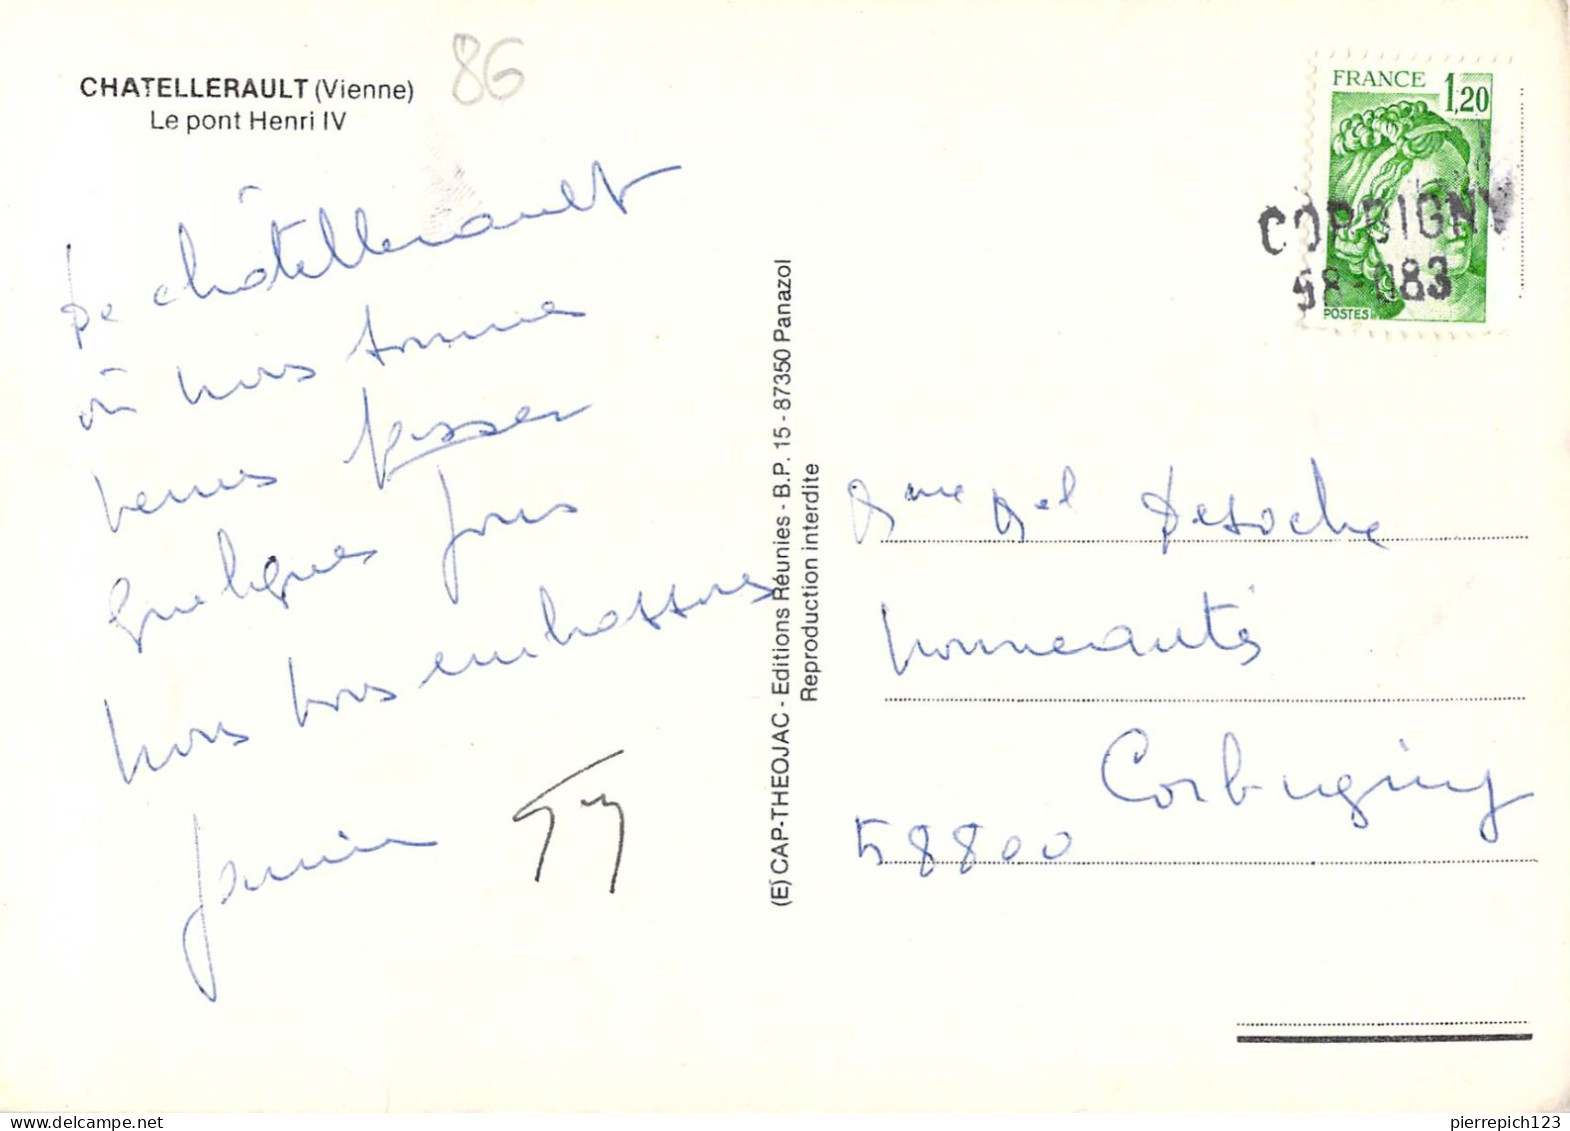 CHATELLERAULT (Vienne)
Le pont Henri IV
86
FRANCE 1,20
POSTES
CORBIGNY
58-083
De châtellerault
où nous sommes
venus passer
quelques jours
nous vous embrassons
(E) CAP-THEOJAC - Editions Réunies - B.P. 15 - 87350 Panazol
Reproduction interdite
Mme Mel Desoche
nouveautés
Corbigny
58800
pierrepich123